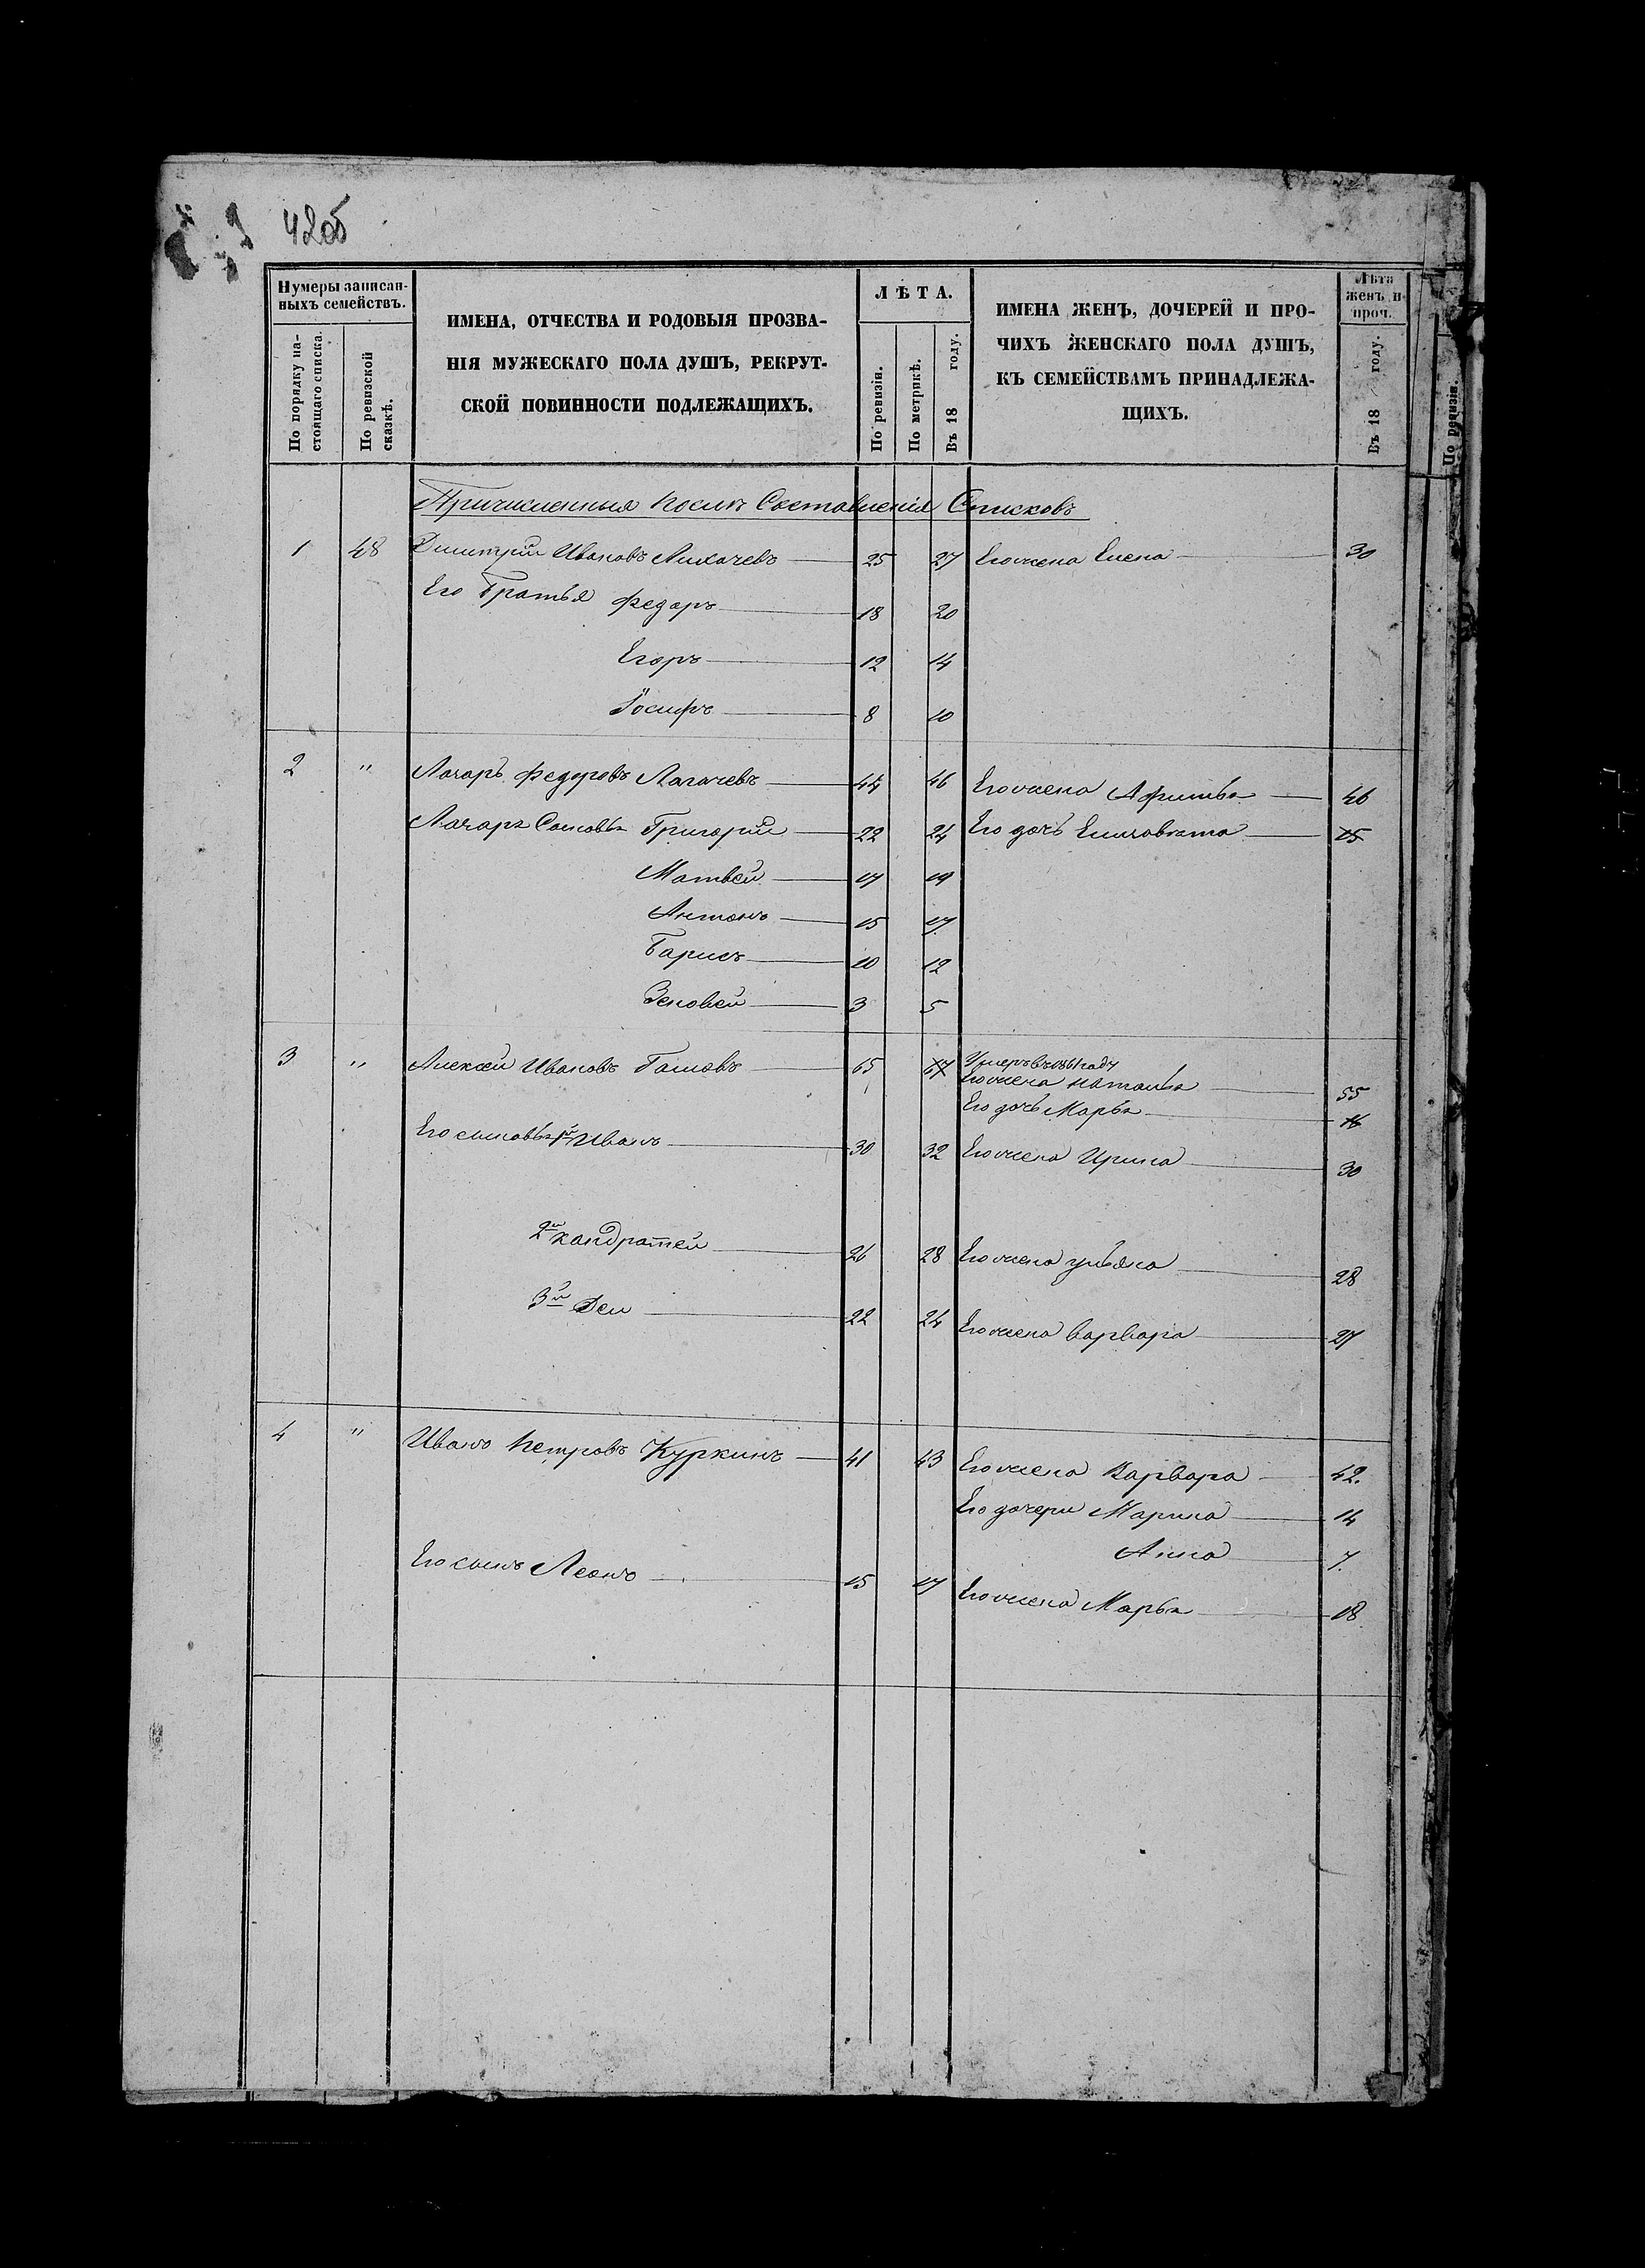 42об
Нумеры записан-
ныхъ семействъ.
По порядку на-
стоящаго списка.
По ревизской
сказкѣ.
ИМЕНА, ОТЧЕСТВА И РОДОВЫЯ ПРОЗВА-
НІЯ МУЖЕСКАГО ПОЛА ДУШЪ, РЕКРУТ-
СКОЙ ПОВИННОСТИ ПОДЛЕЖАЩИХЪ.
ЛѢТА.
По ревизіи.
По метрикѣ.
Въ 18 году.
ИМЕНА ЖЕНЪ, ДОЧЕРЕЙ И ПРО-
ЧИХЪ ЖЕНСКАГО ПОЛА ДУШЪ,
КЪ СЕМЕЙСТВАМЪ ПРИНАДЛЕЖА-
ЩИХЪ.
Лѣта
женъ и
проч.
Въ 18 году.
По ревизіи.
Причисленныя послѣ Составленія Списковъ
1 48 Димитрій Ивановъ Лихачевъ 25 27 Его жена Елена 30
Его Братья Федаръ 18 20
Егоръ 12 14
Іосифъ 8 10
2 " Лазарь Федоровъ Логачевъ 44 46 Его жена 46
Лазаря Сыновья Григорій 22 24 Его дочь Елизовета 15
Матвей 17 19
Антонъ 15 17
Барисъ 10 12
Зеновей 3 5
3 " Алексей Ивановъ 65 67 Умеръ въ 1861 гаду
Его жена Наталья 55
Его дочь Марья 16
Его сыновья 1й Иванъ 30 32 Его жена Ирина 30
2й Кандратей 26 28 Его жена ульяна 28
3й 22 24 Его жена варвара 27
4 " Иванъ Петровъ Куркинъ 41 43 Его жена Варвара 42.
Его дочери Марина 14
Анна 7.
Его сынъ Леонъ 15 17 Его жена Марья 18